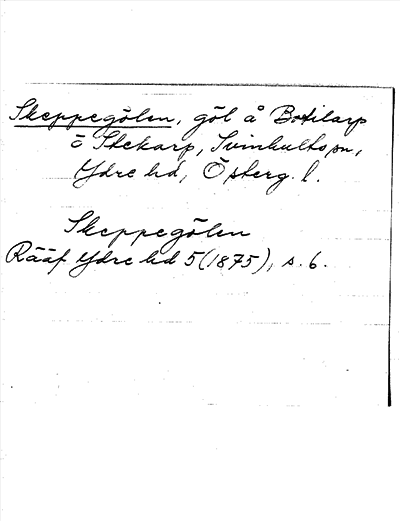 Skeppegölen, göl å Botilarp
o Stekarp, Svinhults sn,
Ydre hd, Österg. l.
Skeppegölen
Rääf Ydre hd 5 (1875), s. 6.